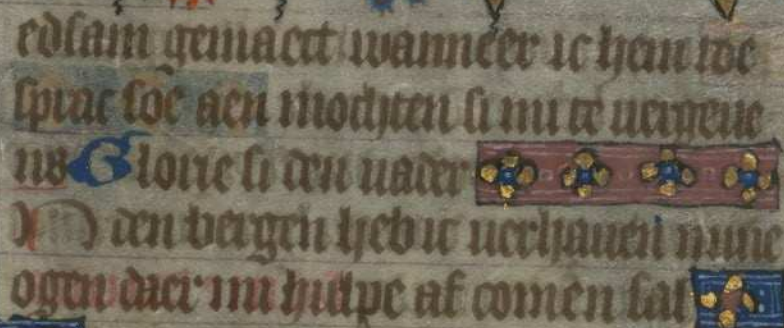 edsam gemaect wanneer ic hem toe
sprac soe aen mochten si mi te uergeue
us Glorie si den uader
In den bergen heb ic uerhauen mine
ogen daer mi hulpe af comen sal